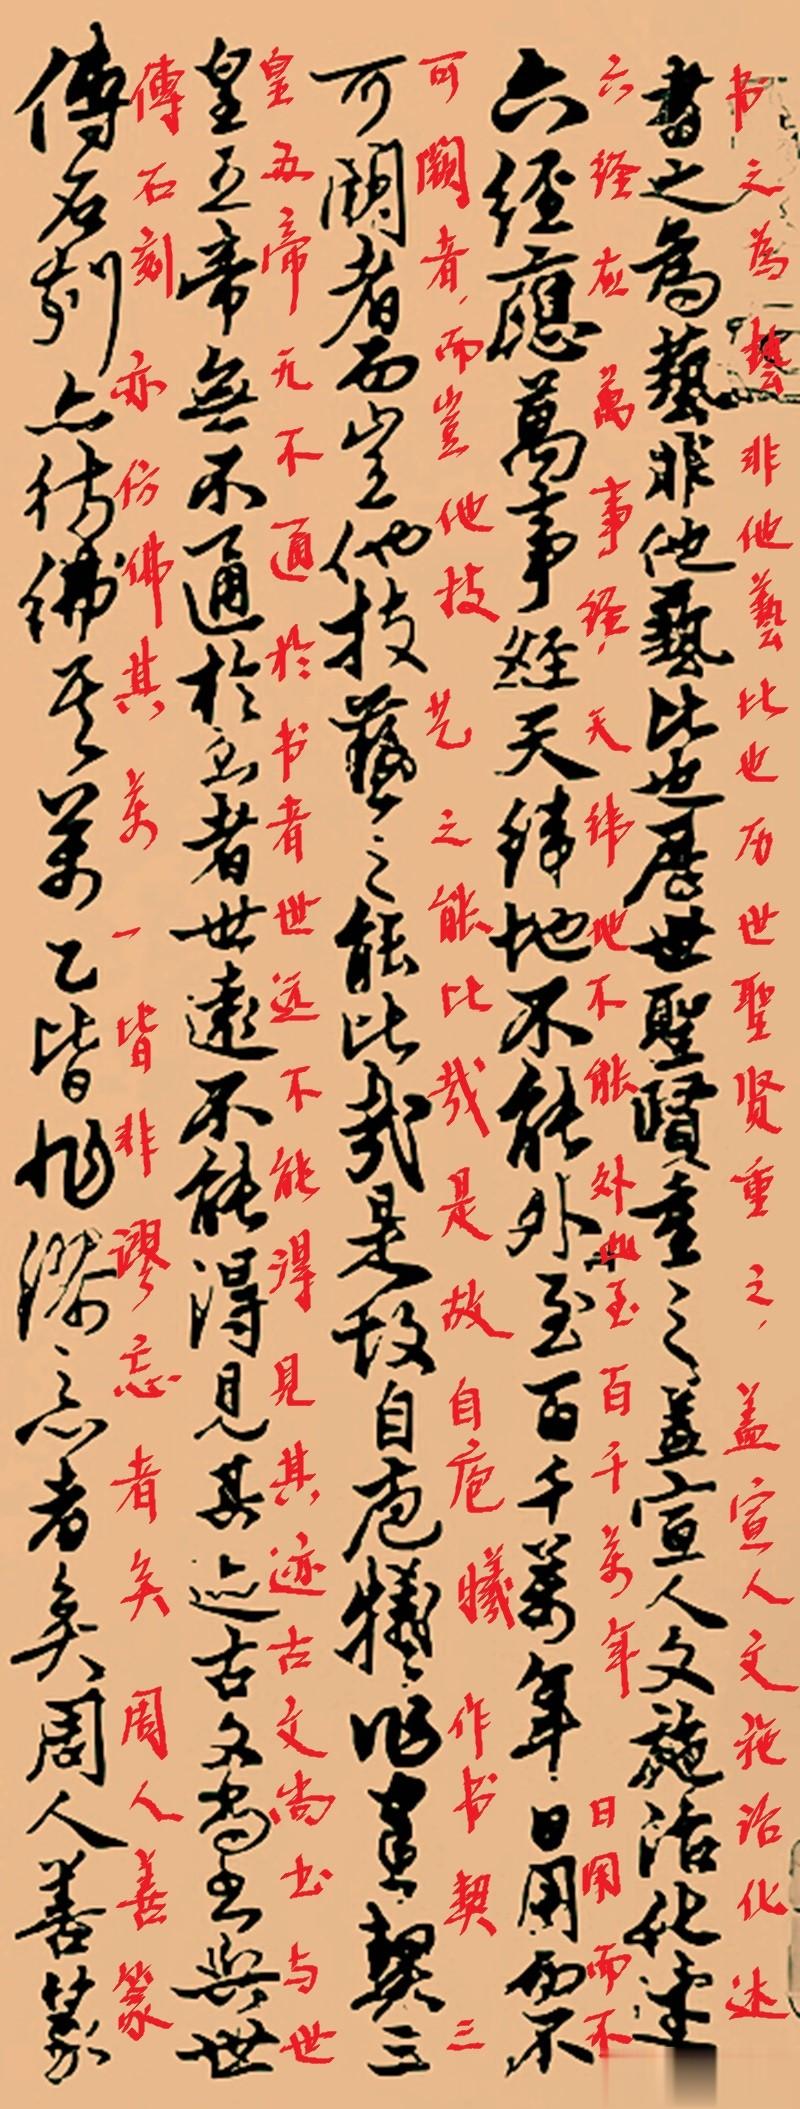 书之為藝非他藝比也历世聖贤重之,盖宣人文施治化述
書之為藝非他藝比也歷世聖賢重之蓋宣人文施治化述
六经应萬事经,天纬地不能外也至百千万年日用而不
六經應萬事經天緯地不能外至百千萬年日用而不
可闕者,而豈他技艺之能比哉是故自庖曦作书契三
可闕者而豈他技藝之能比哉是故自庖犧作書契三
皇五帝无不通於书者世远不能得見其迹古文尚书与世
皇五帝無不通於書者世遠不能得見其迹古文尚書與世
傳石刻亦仿佛其万一皆非謬忘者矣周人善篆
傳石刻亦彷彿其萬乙皆非謬忘者矣周人善篆